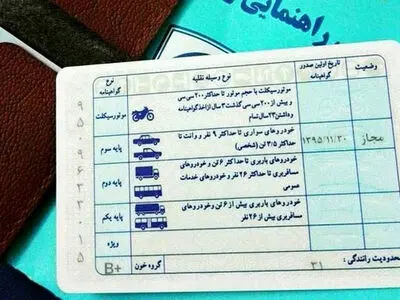 راهنمایی
وضعیت
تاریخ اولین صدور گواهینامه
نوع وسیله نقلیه
نوع گواهینامه
موتورسیکلت با حجم موتور تا حداکثر ۲۰۰ سی سی
و بیش از ۲۰۰ سی سی گذشت ۳ سال از اخذ گواهینامه
وداشتن ۲۳ سال تمام
موتورسیکلت
خودروهای سواری تا حداکثر ۹ نفر و وانت تا
حداکثر ۳/۵ تن (شخصی)
پایه سوم
۱۳۹۵/۱۱/۳۰
مجاز
خودروهای باربری تا حداکثر ۶ تن و خودروهای
مسافربری تا حداکثر ۲۶ نفر و خودروهای خدمات
عمومی
پایه دوم
خودروهای باربری بیش از ۶ تن و خودروهای
مسافربری بیش از ۲۶ نفر
پایه یکم
ویژه
محدودیت رانندگی :
۳۱
گروه خون
B+